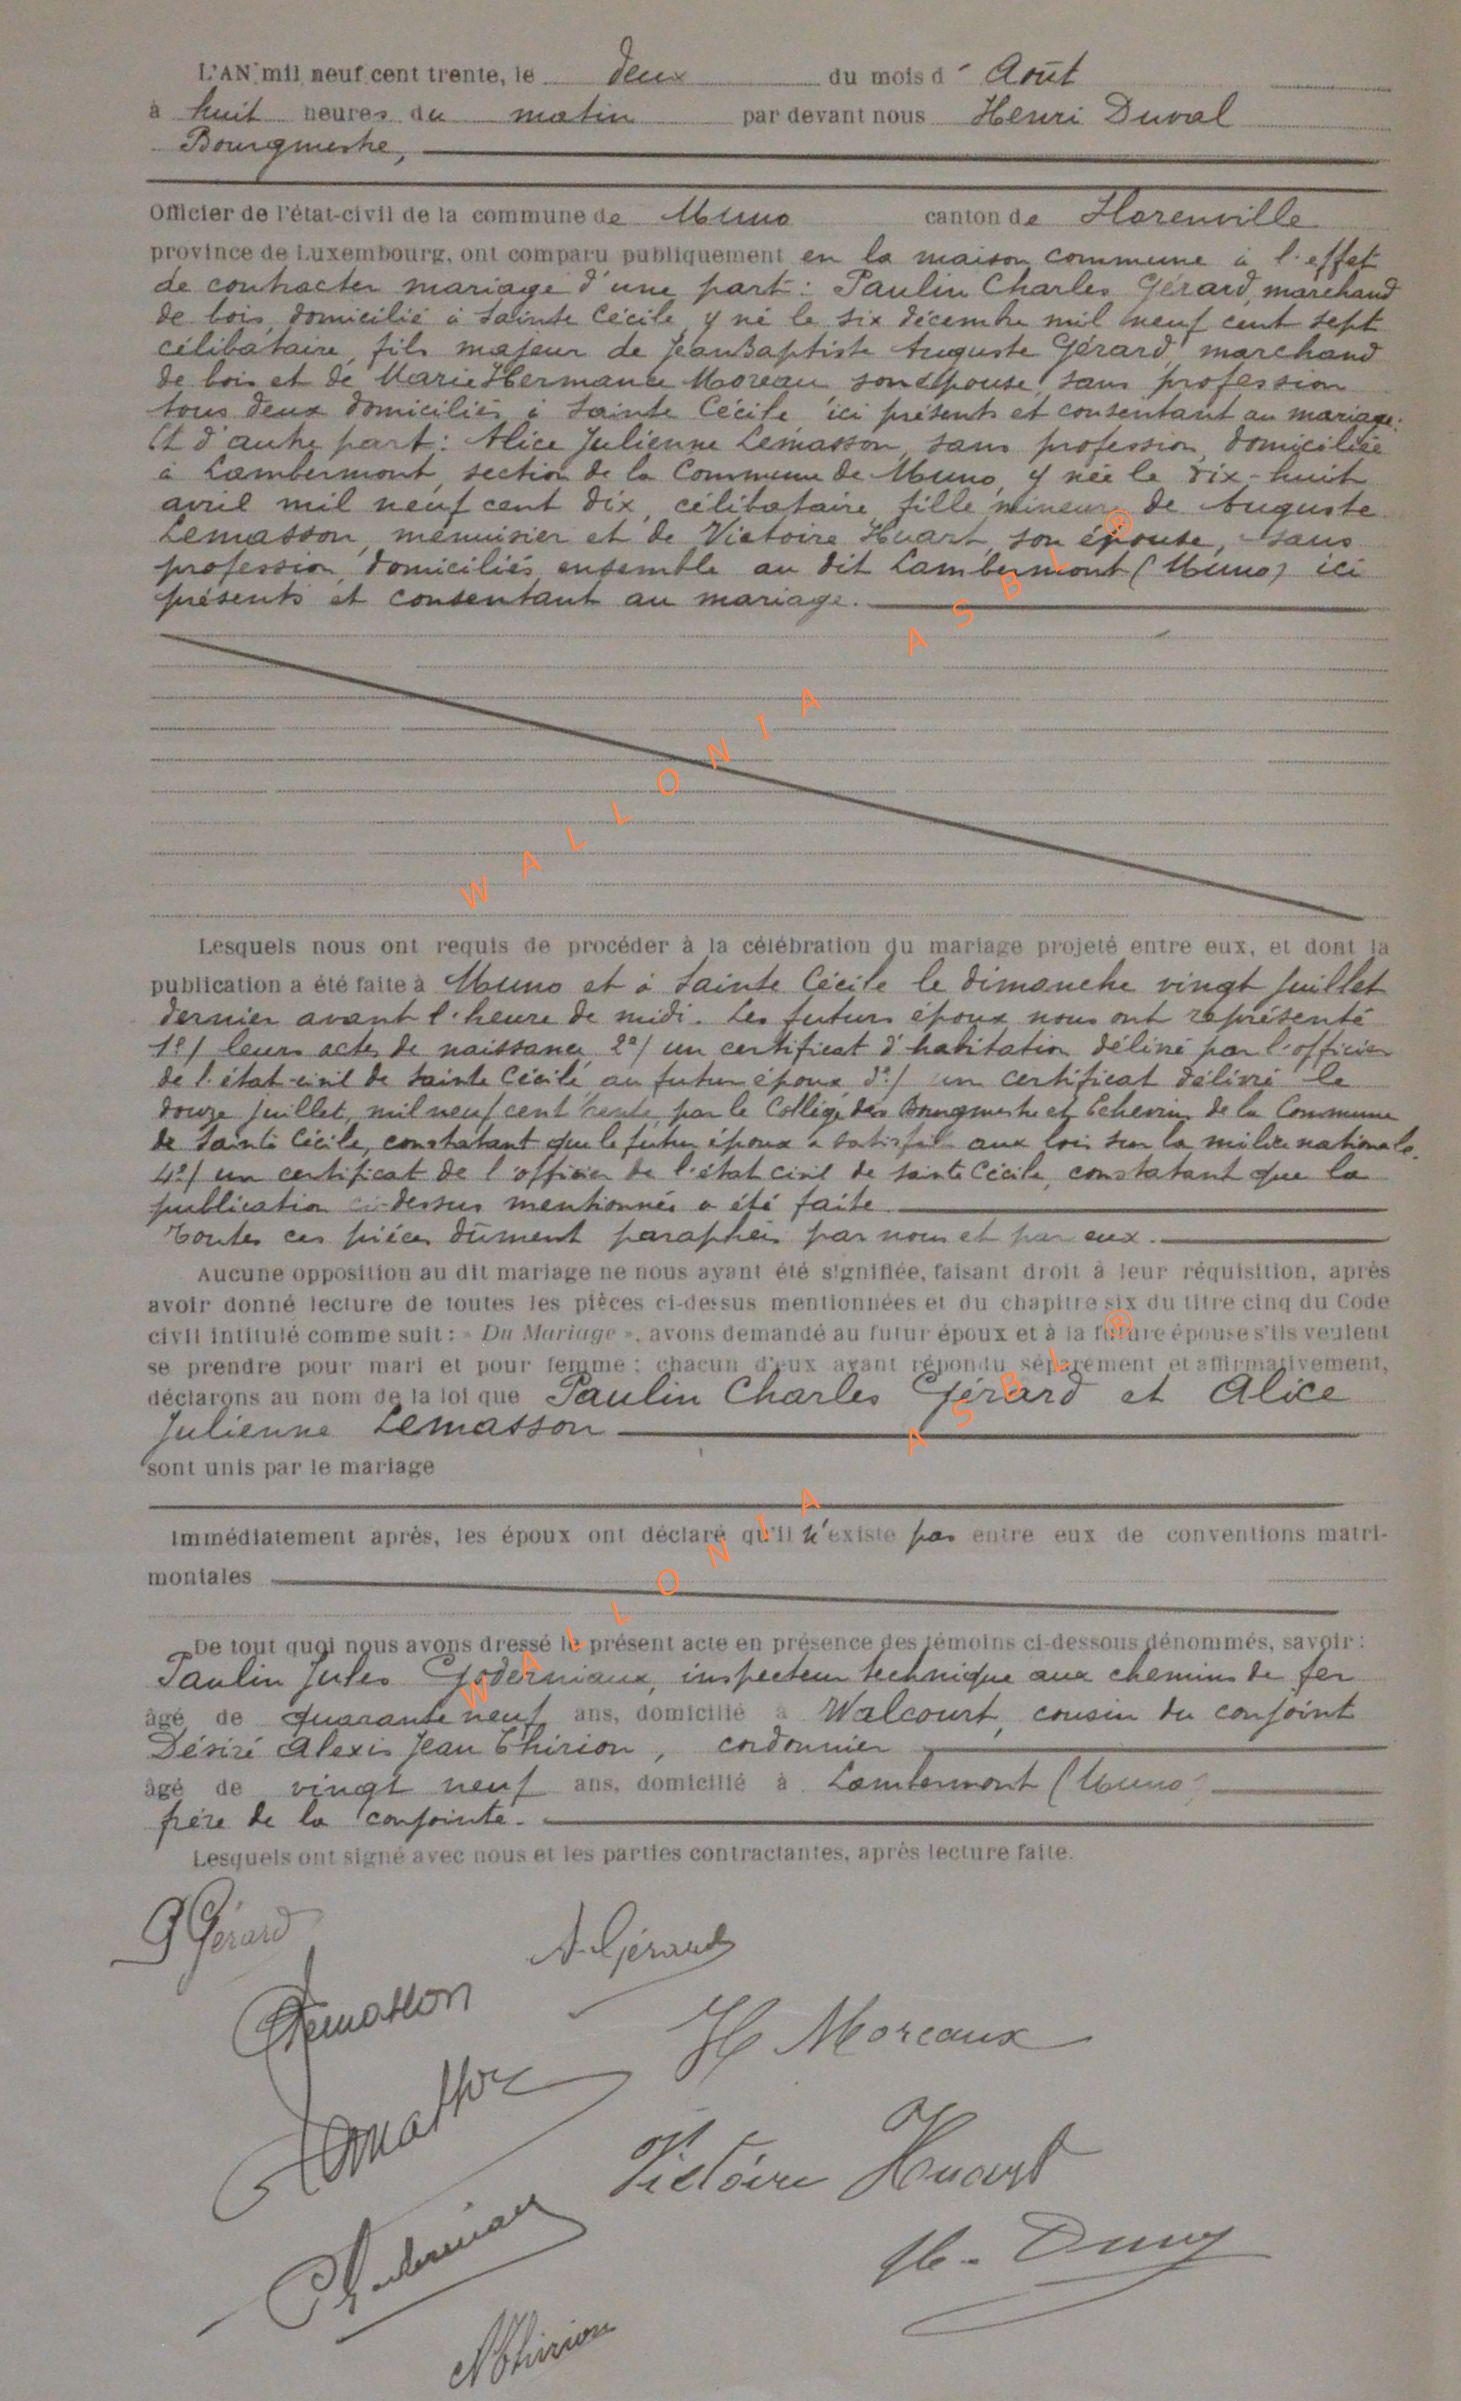 L'AN mil neuf cent trente, le deux du mois d' Août
à huit heures du matin par devant nous Henri Duval
Bourgmestre,
Officier de l'état-civil de la commune de Muno canton de Florenville
province de Luxembourg, ont comparu publiquement en la maison commune à l'effet
de contracter mariage d'une part : Paulin Charles Gérard, marchand
de bois, domicilié à Sainte Cécile, y né le six décembre mil neuf cent sept
célibataire, fils majeur de Jean Baptiste Auguste Gérard, marchand
de bois et de Marie Hermance Moreau son épouse, sans profession
tous deux domiciliés à Sainte Cécile ici présents et consentant au mariage.
Et d'autre part : Alice Julienne Lemasson, sans profession, domiciliée
à Lambermont, section de la Commune de Muno, y née le dix-huit
avril mil neuf cent dix, célibataire, fille mineure de Auguste
Lemasson, menuisier et de Victoire Huart, son épouse, sans
profession, domiciliés ensemble au dit Lambermont (Muno) ici
présents et consentant au mariage.
WALLONIA ASBL ®
Lesquels nous ont requis de procéder à la célébration du mariage projeté entre eux, et dont la
publication a été faite à Muno et à Sainte Cécile le dimanche vingt juillet
dernier avant l'heure de midi. Les futurs époux nous ont représenté
1º/ leurs actes de naissance, 2º/ un certificat d'habitation délivré par l'officier
de l'état-civil de Sainte Cécile au futur époux 3º/ un certificat délivré le
douze juillet, mil neuf cent trente, par le Collège des Bourgmestre et Echevins de la Commune
de Sainte Cécile, constatant que le futur époux a satisfait aux lois sur la milice nationale.
4º/ un certificat de l'officier de l'état civil de Sainte Cécile, constatant que la
publication ci-dessus mentionnée a été faite
Toutes ces pièces dûment paraphées par nous et par eux.
Aucune opposition au dit mariage ne nous ayant été signifiée, faisant droit à leur réquisition, après
avoir donné lecture de toutes les pièces ci-dessus mentionnées et du chapitre six du titre cinq du Code
civil intitulé comme suit : « Du Mariage », avons demandé au futur époux et à la future épouse s'ils veulent
se prendre pour mari et pour femme ; chacun d'eux ayant répondu séparément et affirmativement,
déclarons au nom de la loi que Paulin Charles Gérard et Alice
Julienne Lemasson
sont unis par le mariage
Immédiatement après, les époux ont déclaré qu'il n'existe pas entre eux de conventions matri-
moniales
WALLONIA ASBL ®
De tout quoi nous avons dressé le présent acte en présence des témoins ci-dessous dénommés, savoir :
Paulin Jules Goderniaux, inspecteur technique aux chemins de fer
âgé de quarante neuf ans, domicilié à Walcourt, cousin du conjoint
Désiré Alexis Jean Thirion, cordonnier
âgé de vingt neuf ans, domicilié à Lambermont (Muno)
frère de la conjointe.
Lesquels ont signé avec nous et les parties contractantes, après lecture faite.
P Gérard
A. Gérard
Lemasson
H Moreaux
Lemasson
Victoire Huart
Goderniaux
H. Duval
Thirion